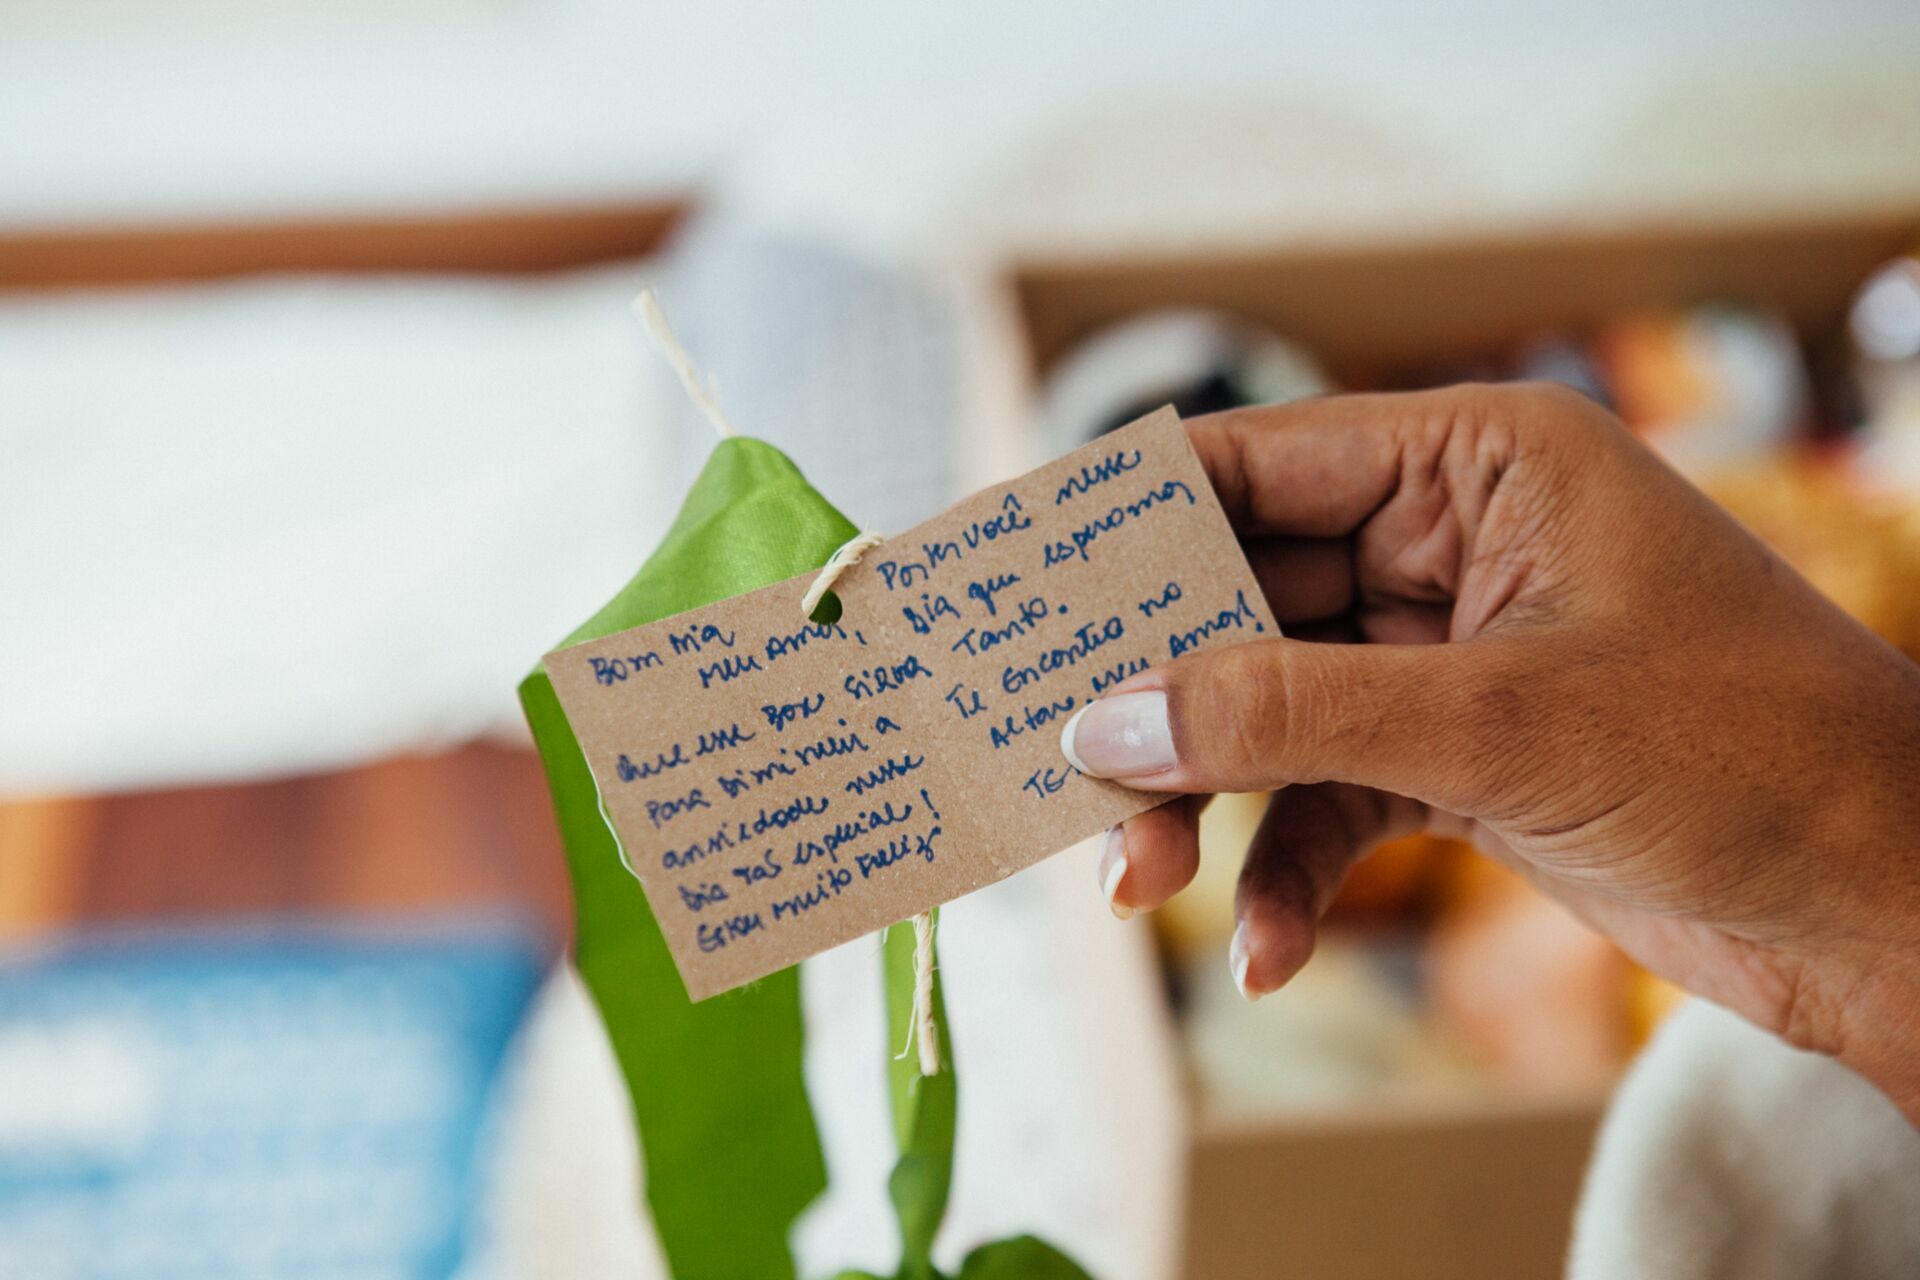 Bom Dia
Meu Amor,
Que esse Box sirva
Para Diminuir a
ansiedade nesse
Dia tão especial!
Estou muito Feliz
Por ter você nesse
Dia que esperamos
Tanto.
Te Encontro no
Altar, Meu Amor!